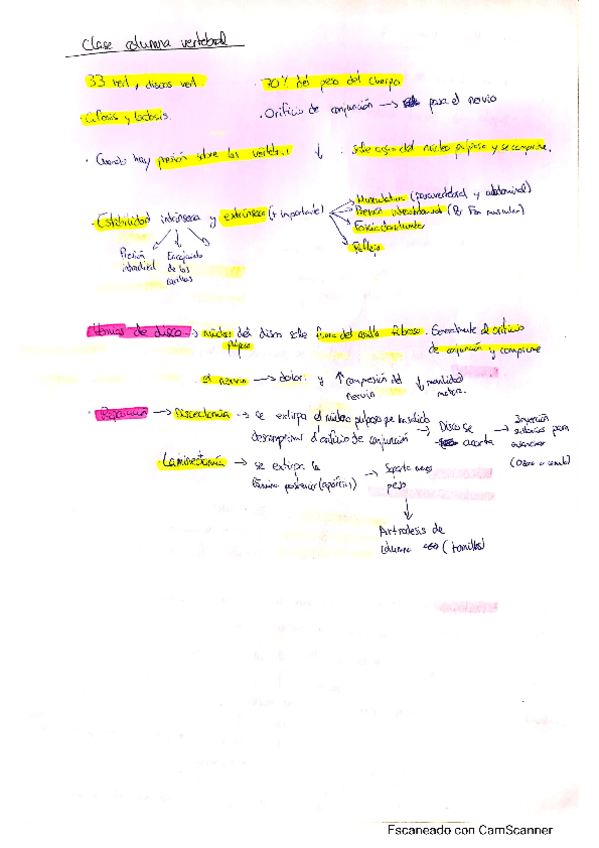 Clase columna vertebral
· 33 vert, discos vert
· 70% del peso del cuerpo
· Cifosis y lordosis.
· Orificio de conjunción → para el nervio
· Cuando hay presión sobre las vertebras ↓ · sobre carga del núcleo pulposo y se comprime.
· Estabilidad intrinseca y extrinseca (+ importante)
Musculatura (paravertebral y abdominal)
Presión intraabdominal
Fascia
Reflejo
Presión intradiscal
Encajado de las carillas
Hernias de disco → núcleo pulposo del disco sale fuera del anillo fibroso. Generalmente al orificio
de conjunción y comprime
el nervio → dolor y ↑ compresión del nervio ↓ movilidad motora.
→ Discectomia → se extirpa el núcleo pulposo que ha salido
descomprimir el orificio de conjunción → Disco se acorta →
Laminectomía → se extirpa la
lámina posterior (apófisis) → Soporta menos
peso
↓
Artrodesis de
columna (tornillos)
Escaneado con CamScanner